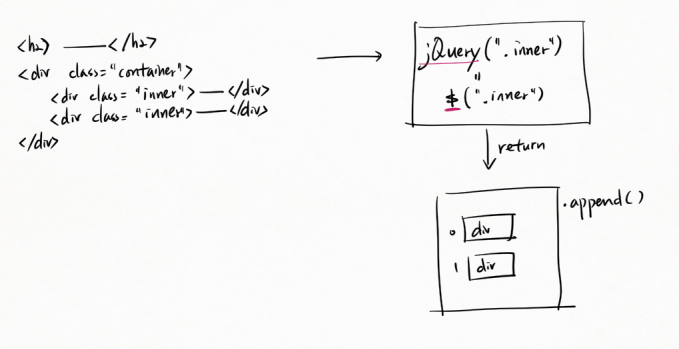 <h2> —— </h2>
<div class="container">
<div class="inner"> — </div>
<div class="inner"> — </div>
</div>
jQuery(".inner")
"
$(".inner")
return
.append()
0 div
1 div